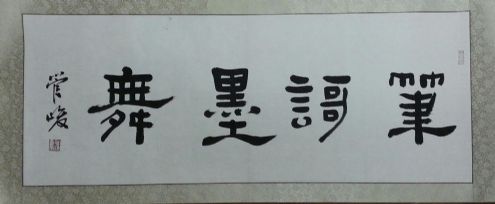 筆謌墨舞
管峻